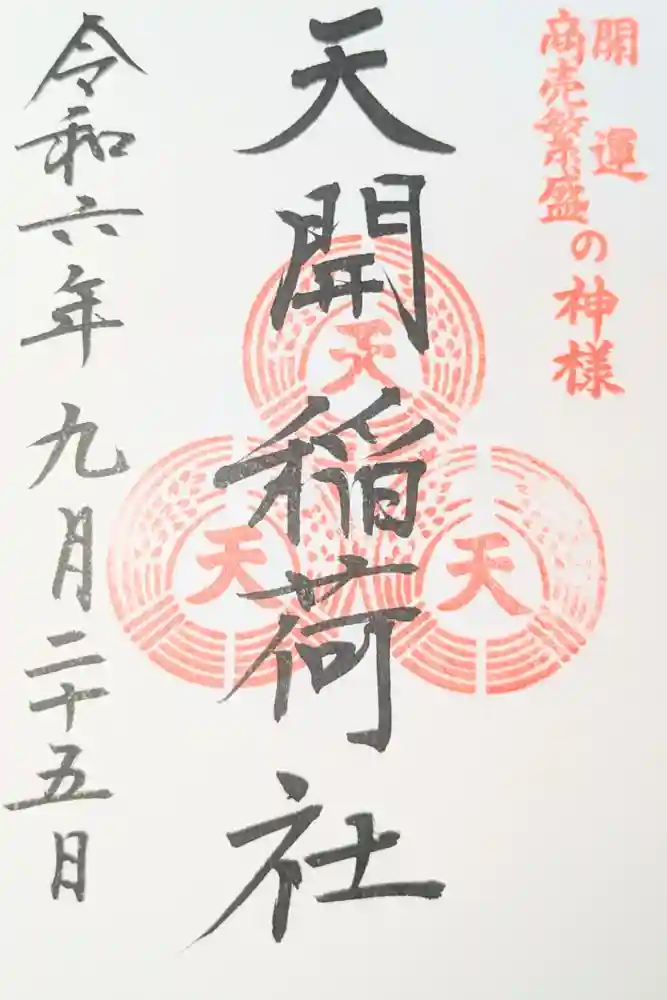 開運
商売繁盛
の神様
天開稲荷社
天
天
天
令和六年九月二十五日